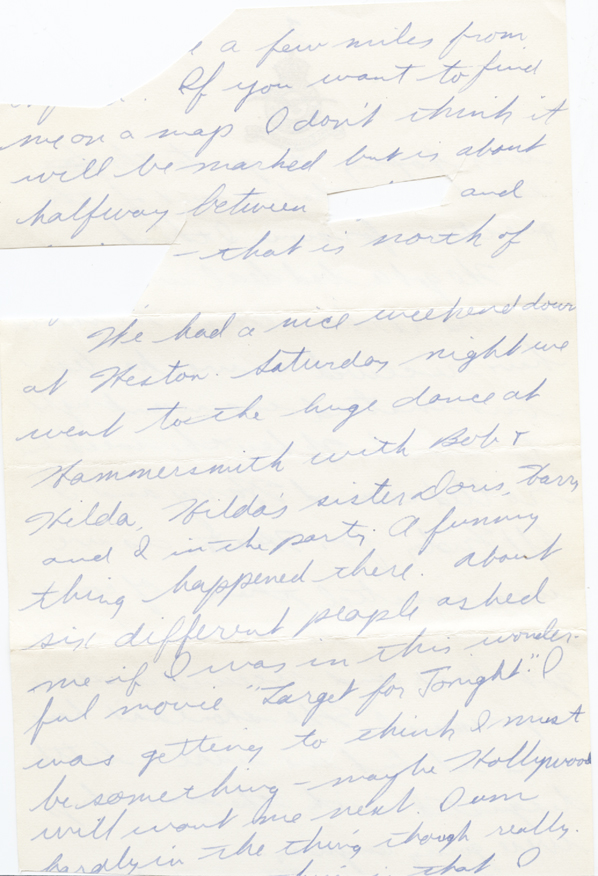 a few miles from
If you want to find
me on a map I don't think it
will be marked but is about
halfway between and
- that is north of
We had a nice weekend down
at Heston. Saturday night we
went to the huge dance at
Hammersmith with Bob +
Hilda, Hilda's sister Doris, Harry
and I in the party. A funny
thing happened there. About
six different people asked
me if I was in this wonder-
ful movie "Target for Tonight". I
was getting to think I must
be something - maybe Hollywood
will want me next. I am
hardly in the thing though really.
is that I